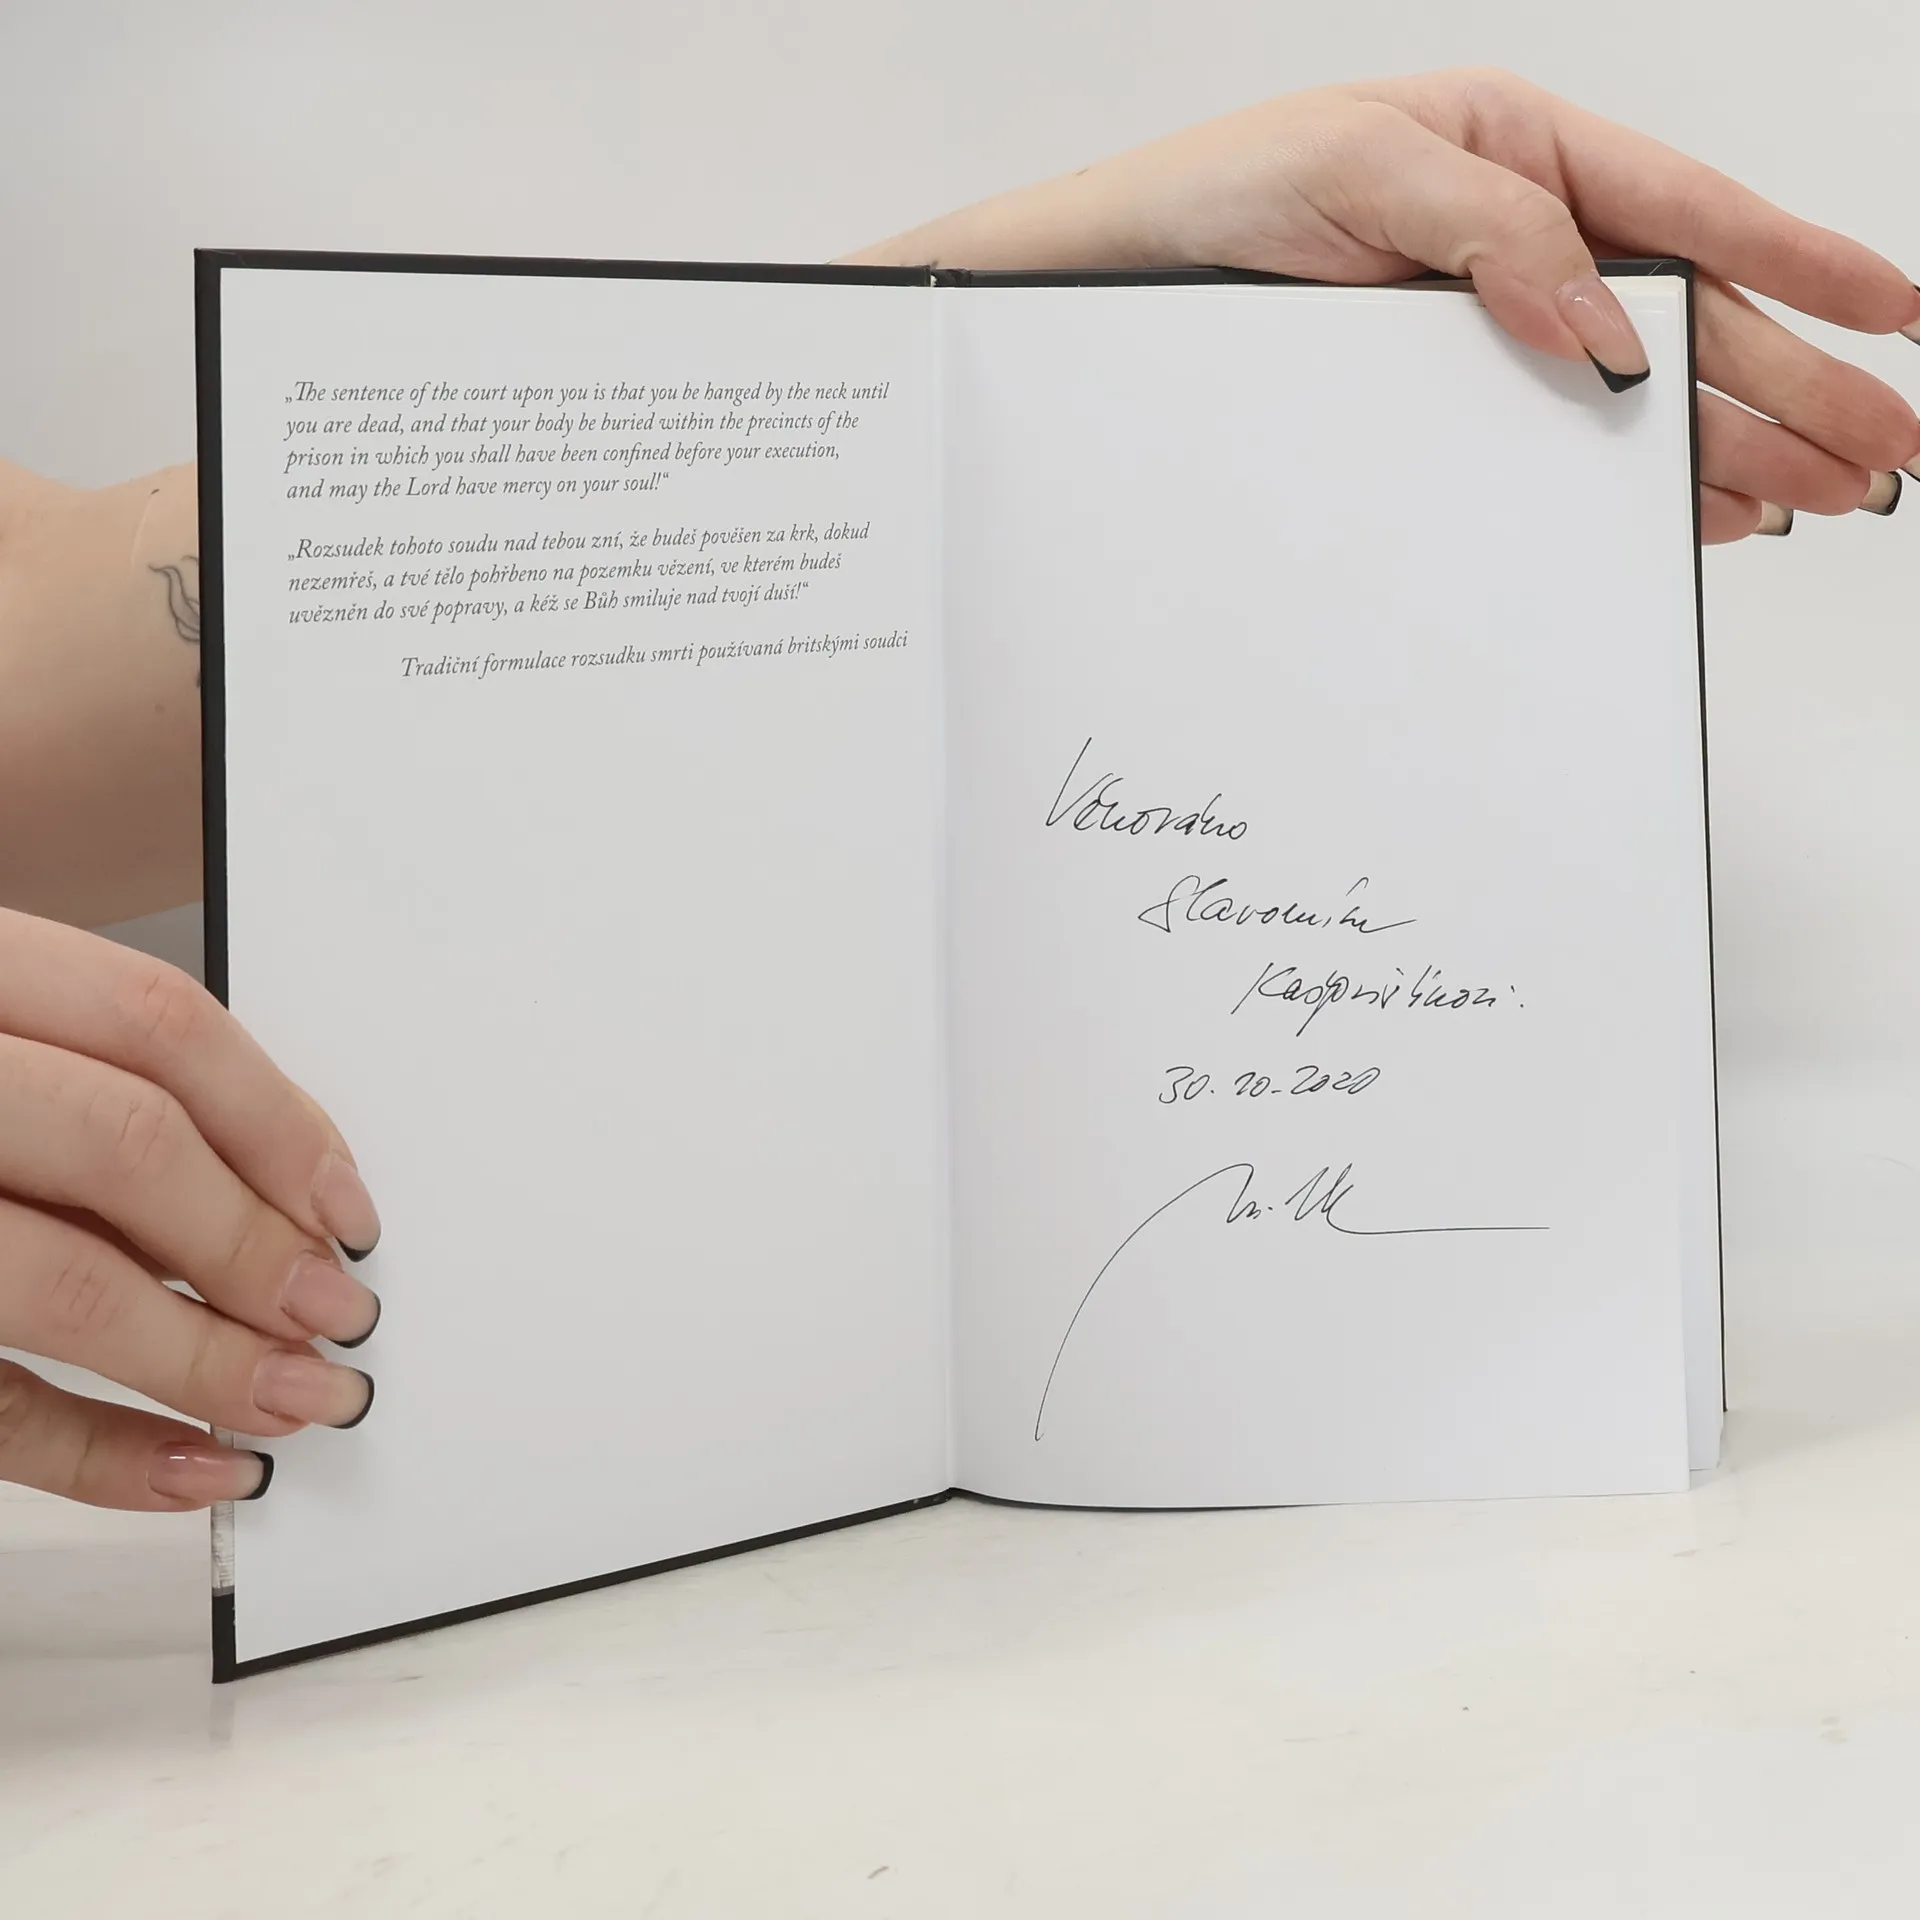 „The sentence of the court upon you is that you be hanged by the neck until
you are dead, and that your body be buried within the precincts of the
prison in which you shall have been confined before your execution,
and may the Lord have mercy on your soul!“
„Rozsudek tohoto soudu nad tebou zní, že budeš pověšen za krk, dokud
nezemřeš, a tvé tělo pohřbeno na pozemku vězení, ve kterém budeš
uvězněn do své popravy, a kéž se Bůh smiluje nad tvojí duší!“
Tradiční formulace rozsudku smrti používaná britskými soudci
Věnováno
30.10.2020